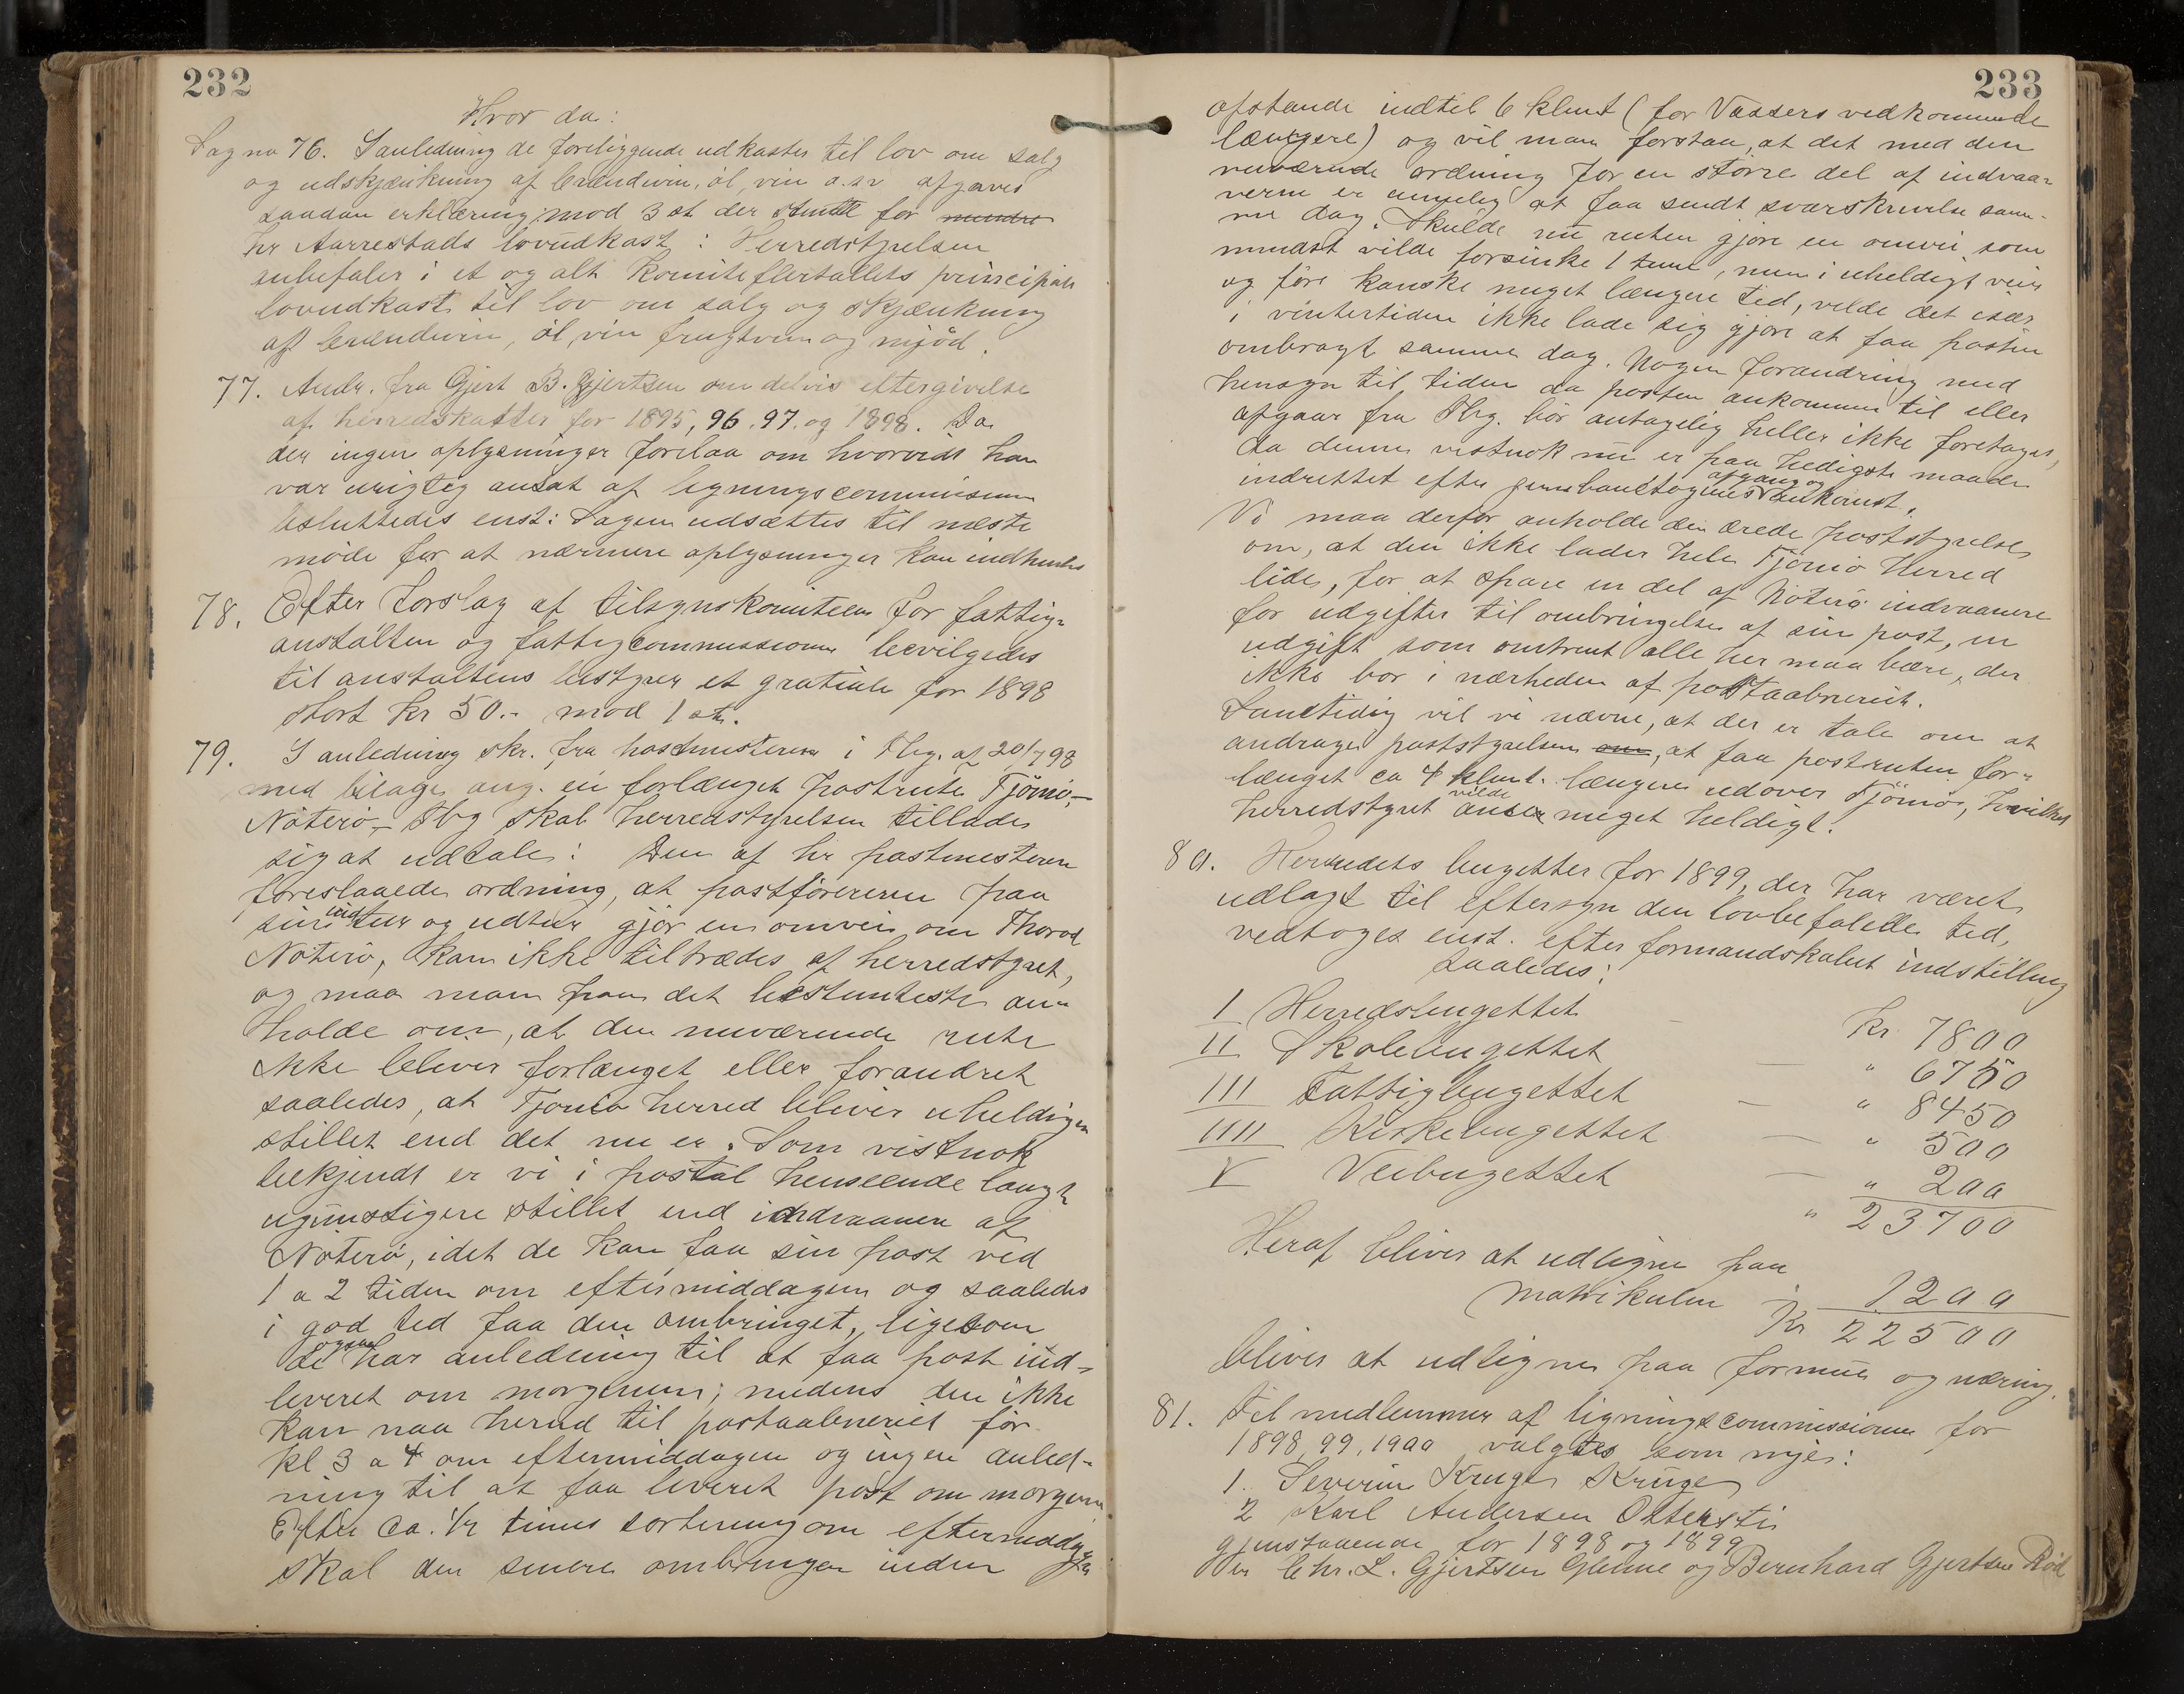 232
Hvor da:
Sag no 76. I anledning de foreliggende udkaster til lov om salg
og udskjænkning af brændevin, öl, vin o.s.v afgaves
saadan erklæring mod 3 st der stemte for mindre
hr Aarrestads lovudkast: Herredstyrelsen
anbefaler i et og alt komiteflertallets principale
lovudkast til lov om salg og skjænkning
af brændevin, öl, vin frugtvin og mjöd.
77. Andr. fra Gjert B. Gjertsen om delvis eftergivelse
af herredskatter for 1895, 96. 97. og 1898. Da
der ingen oplysninger forelaa om hvorvidt han
var urigtig ansat af ligningscommissionen
besluttedes enst: Sagen udsættes til næste
möde for at nærmere oplysninger kan indhentes
78. Efter forslag af tilsynskomiteen for fattig-
anstalten og fattigcommissionen bevilgedes
til anstaltens bestyrer et gratiale for 1898
stort kr 50.- mod 1 st.
79. I anledning skr. fra postmesteren i Tbg. af 20/7 98
med bilage ang. en forlænget postrute Tjömö,-
Nöterö,- Tbg skal herredstyrelsen tillade
sig at udtale: Den af hr postmesteren
foreslaaede ordning, at postförereren paa
sin indtur og udtur gjör en omvei om Thorød
Nöterö, kan ikke tiltrædes af herredstyret,
og maa man paa det bestemteste an-
holde om, at den nuværende rute
ikke bliver forlænget eller forandret
saaledes, at Tjömö herred bliver uheldigere
stillet end det nu er. Som vistnok
bekjendt er vi i postal henseende langt
ugunstigere stillet end indvaanere af
Nöterö, idet de kan faa sin post ved
1 a 2 tiden om eftermiddagen og saaledes
i god tid faa den ombringet, ligesom
de ogsaa har anledning til at faa post ind-
leveret om morgenen; medens den ikke
kan naa herud til postaabneriet för
kl 3 a 4 om eftermiddagen og ingen anled-
ning til at faa leveret post om morgenen
Efter ca. 1/2 times sortering om eftermiddagen
skal den senere ombringes inden
233
afstande indtil 6 klmt (for Vassers vedkommende
længere) og vil man forstaa, at det med den
nuværende ordning for en större del af indvaa-
nerne er umulig at faa sendt svarskrivelse sam-
me dag. Skulde nu ruten gjöre en omvei som
mindst vilde forsinke 1 time, men i uheldigt veir
og före kanske meget længere tid, vilde det især
i vintertiden ikke lade sig gjöre at faa posten
ombragt samme dag. Nogen forandring med
hensyn til tiden da posten ankommer til eller
afgaar fra Tbg. bör antagelig heller ikke foretages,
da denne vistnok nu er paa heldigste maade
indrettet efter jernbanetogenes afgang og ankomst.
Vi maa derfor anholde den ærede poststyrelse
om, at den ikke lader hele Tjömö Herred
lide, for at spare en del af Nöterö indvaanere
for udgifter til ombringelse af sin post, en
udgift som omtrent alle her maa bære, der
ikke bor i nærheden af postaabneriet.
Samtidig vil vi nævne, at der er tale om at
andrage poststyrelsen om, at faa postruten for-
længet ca 4 klmt. længere udover Tjömö, hvilket
herredstyret vilde anse meget heldigt.
80. Herredets bugetter for 1899, der har været
udlagt til eftersyn den lovbefalede tid,
vedtoges enst. efter formandskabet indstilling
saaledes:
I Herredsbugettet - Kr 7800
II Skolebugettet - " 6750
III Fattigbugettet - " 8450
IIII Kirkebugettet - " 500
V Veibugettet - " 200
" 23700
Heraf bliver at udligne paa
matrikulen 1200
Kr 22500
bliver at udlignes paa formue og næring.
81. Til medlemmer af ligningscommissionen for
1898, 99, 1900 valgtes som nye:
1. Severin Kruge Kruge
2 Karl Andersen
gjenstaaende for 1898 og 1899
er Chr. L. Gjertsen Glenne og Bernhard Gjertsen Röd